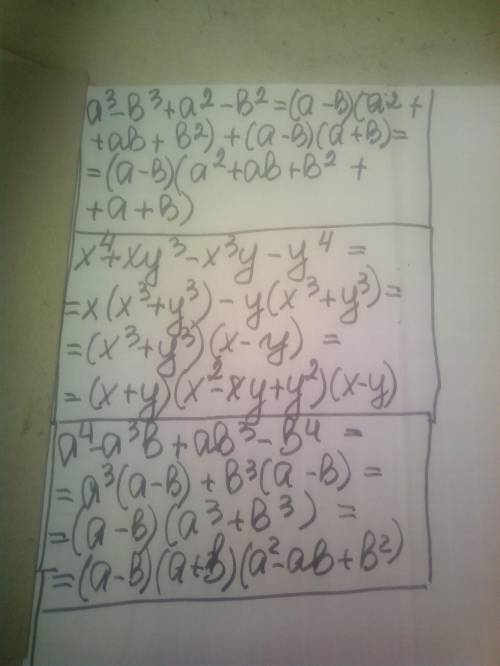 a³-b³+a²-b²=(a-b)(a²+
+ab+b²)+(a-b)(a+b)=
=(a-b)(a²+ab+b²+
+a+b)
x⁴+xy³-x³y-y⁴=
=x(x³+y³)-y(x³+y³)=
=(x³+y³)(x-y)=
=(x+y)(x²-xy+y²)(x-y)
a⁴-a³b+ab³-b⁴=
=a³(a-b)+b³(a-b)=
=(a-b)(a³+b³)=
=(a-b)(a+b)(a²-ab+b²)